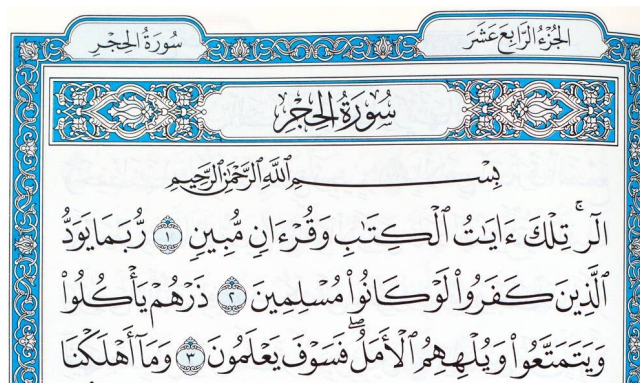 الجُزْءُ الرَّابِعَ عَشَرَ
سُورَةُ الحِجْرِ
سُورَةُ الحِجْرِ
بِسْمِ اللَّهِ الرَّحْمَٰنِ الرَّحِيمِ
الٓر ۚ تِلْكَ ءَايَٰتُ ٱلْكِتَٰبِ وَقُرْءَانٍ مُّبِينٍ ١ رُّبَمَا يَوَدُّ
ٱلَّذِينَ كَفَرُوا۟ لَوْ كَانُوا۟ مُسْلِمِينَ ٢ ذَرْهُمْ يَأْكُلُوا۟
وَيَتَمَتَّعُوا۟ وَيُلْهِهِمُ ٱلْأَمَلُ ۖ فَسَوْفَ يَعْلَمُونَ ٣ وَمَآ أَهْلَكْنَا